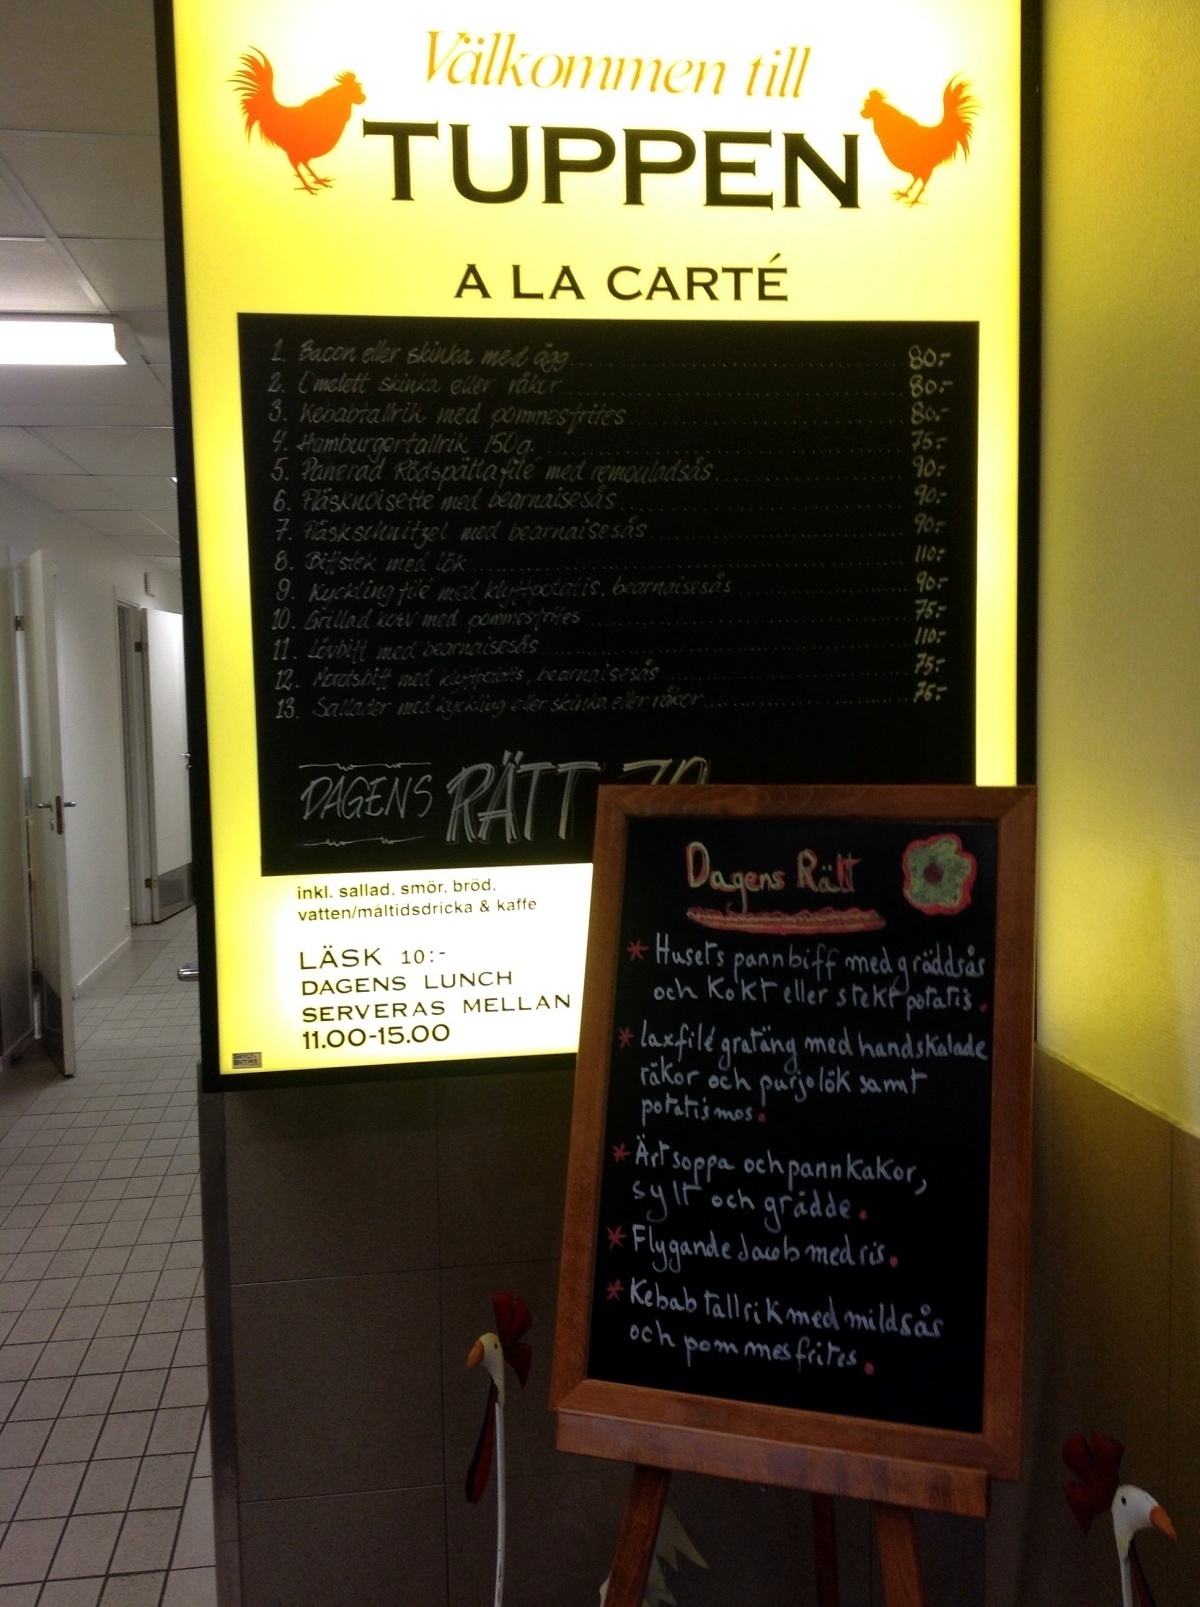 Välkommen till
TUPPEN
A LA CARTÉ
1. Bacon eller skinka med ägg 80:-
2. Omelett skinka eller räkor 80:-
3. Kebabtallrik med pommesfrites 80:-
4. Hamburgertallrik 150g. 75:-
5. Panerad Rödspättafilé med remouladsås 90:-
6. Fläsknoisette med bearnaisesås 90:-
7. Fläskschnitzel med bearnaisesås 90:-
8. Biffstek med lök 110:-
9. Kycklingfilé med klyftpotatis, bearnaisesås 90:-
10. Grillad korv med pommesfrites 75:-
11. Lövbiff med bearnaisesås 110:-
12. Morotsbiff med klyftpotatis, bearnaisesås 75:-
13. Sallader med kyckling eller skinka eller räkor 75:-
DAGENS RÄTT 70
inkl. sallad, smör, bröd,
vatten/måltidsdricka & kaffe
LÄSK 10:-
DAGENS LUNCH
SERVERAS MELLAN
11.00-15.00
Dagens Rätt
* Husets pannbiff med gräddsås
och kokt eller stekt potatis.
* laxfilé gratäng med handskalade
räkor och purjolök samt
potatismos.
* Ärtsoppa och pannkakor,
sylt och grädde.
* Flygande Jacob med ris.
* Kebab tallrik med mildsås
och pommesfrites.